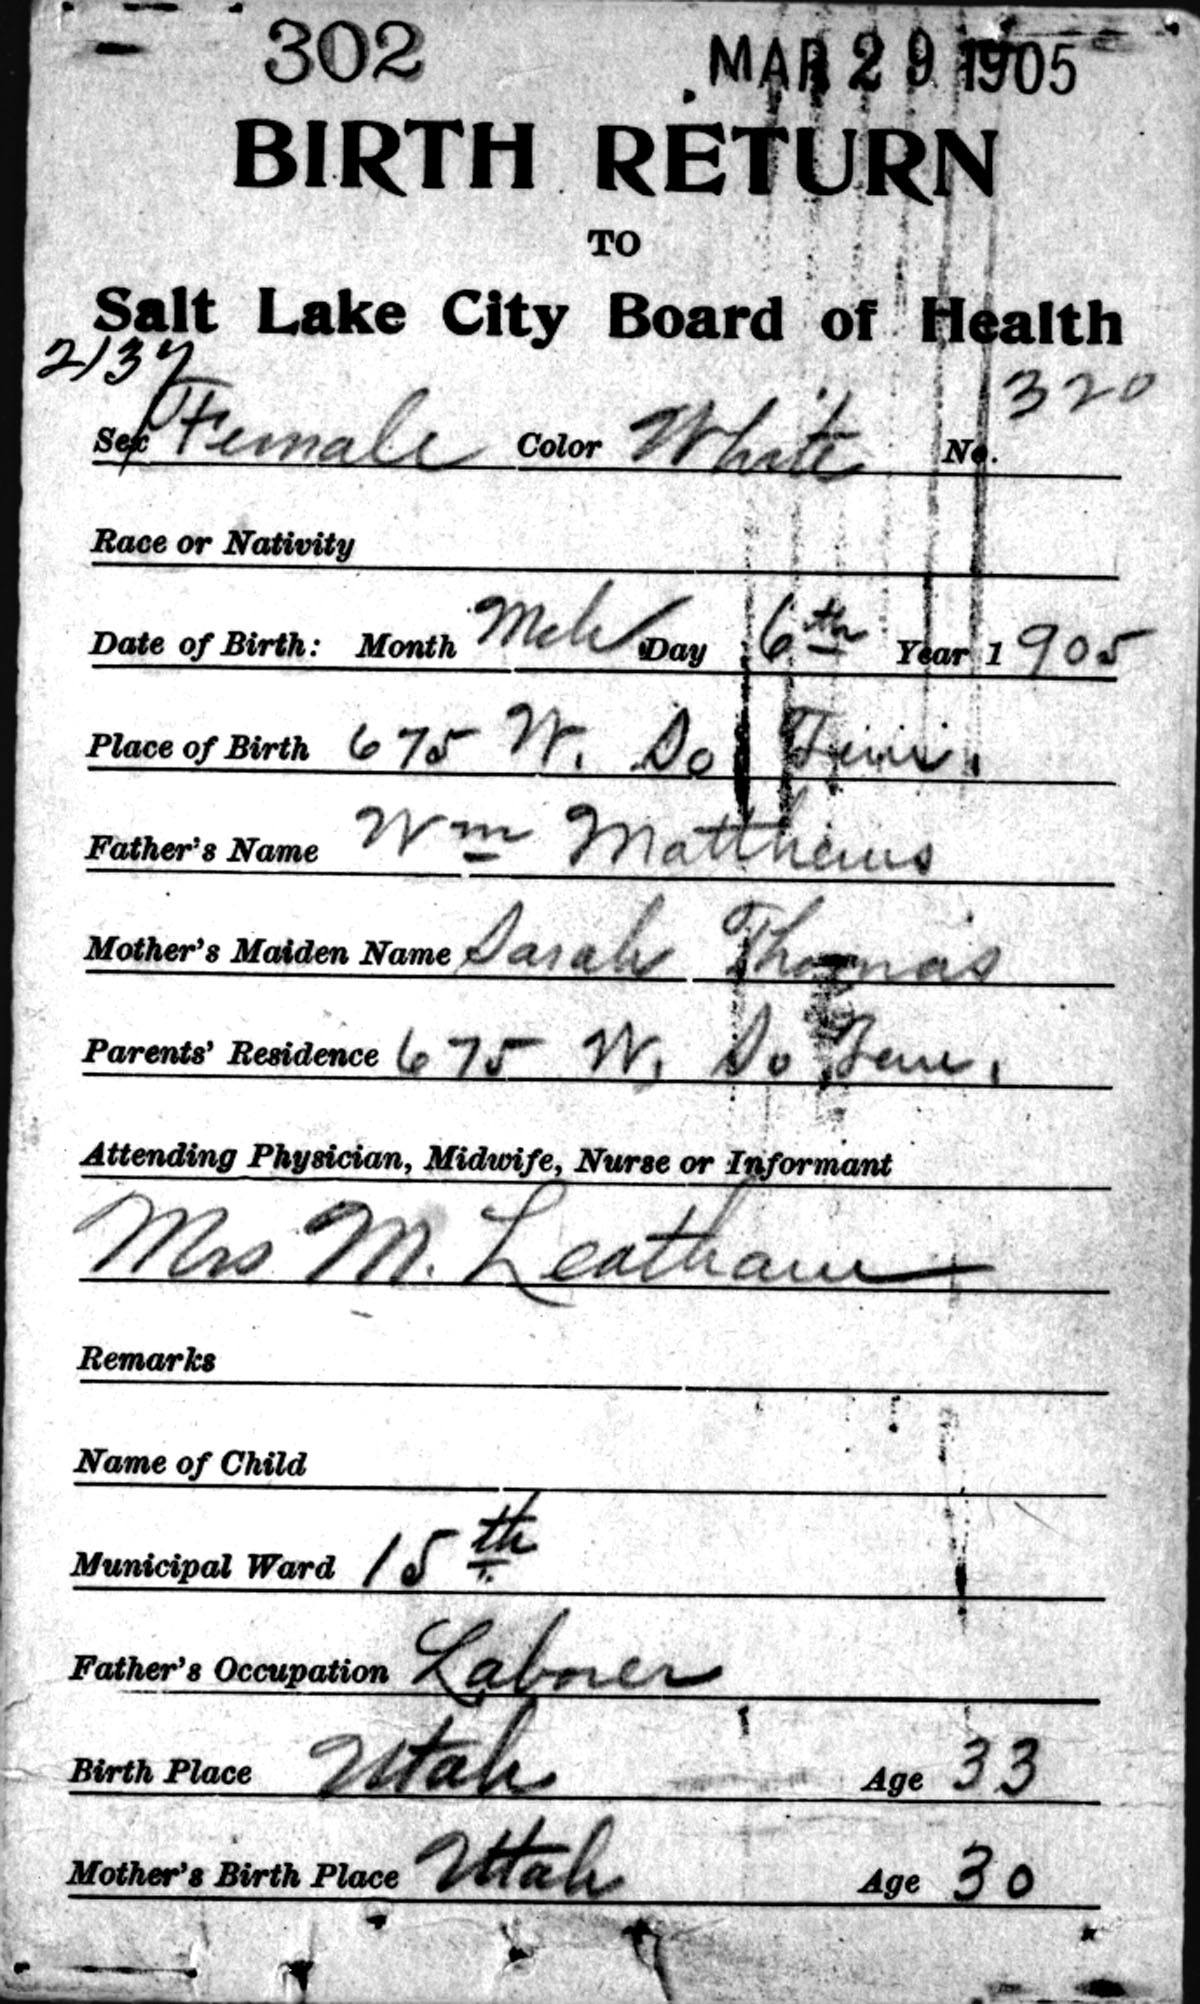 302 MAR 29 1905
BIRTH RETURN
TO
Salt Lake City Board of Health
2137
320
Sex Female Color White No.
Race or Nativity
Date of Birth: Month Mch Day 6th Year 1905
Place of Birth 675 W. So Tem.
Father's Name Wm Matthews
Mother's Maiden Name Sarah Thomas
Parents' Residence 675 W. So Tem.
Attending Physician, Midwife, Nurse or Informant
Mrs M. Leatham
Remarks
Name of Child
Municipal Ward 15th
Father's Occupation Laborer
Birth Place Utah Age 33
Mother's Birth Place Utah Age 30